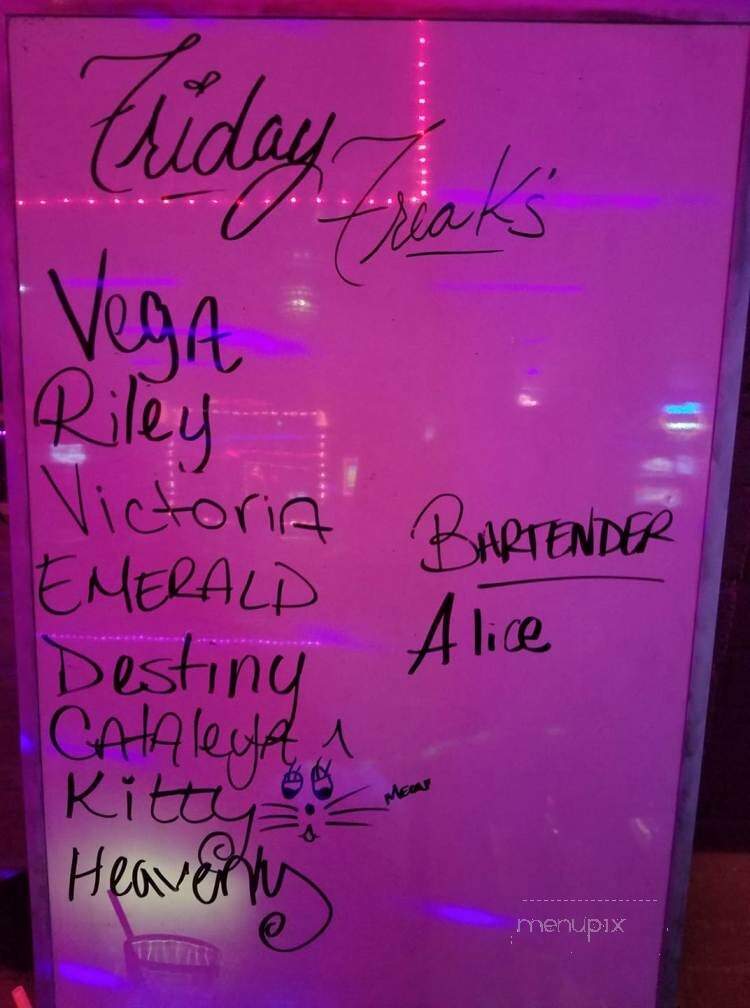 Friday
Freak's
Vega
Riley
Victoria
EMERALD
Destiny
Cataleya
Kitty
Meow
Heavenly
BARTENDER
Alice
menupix